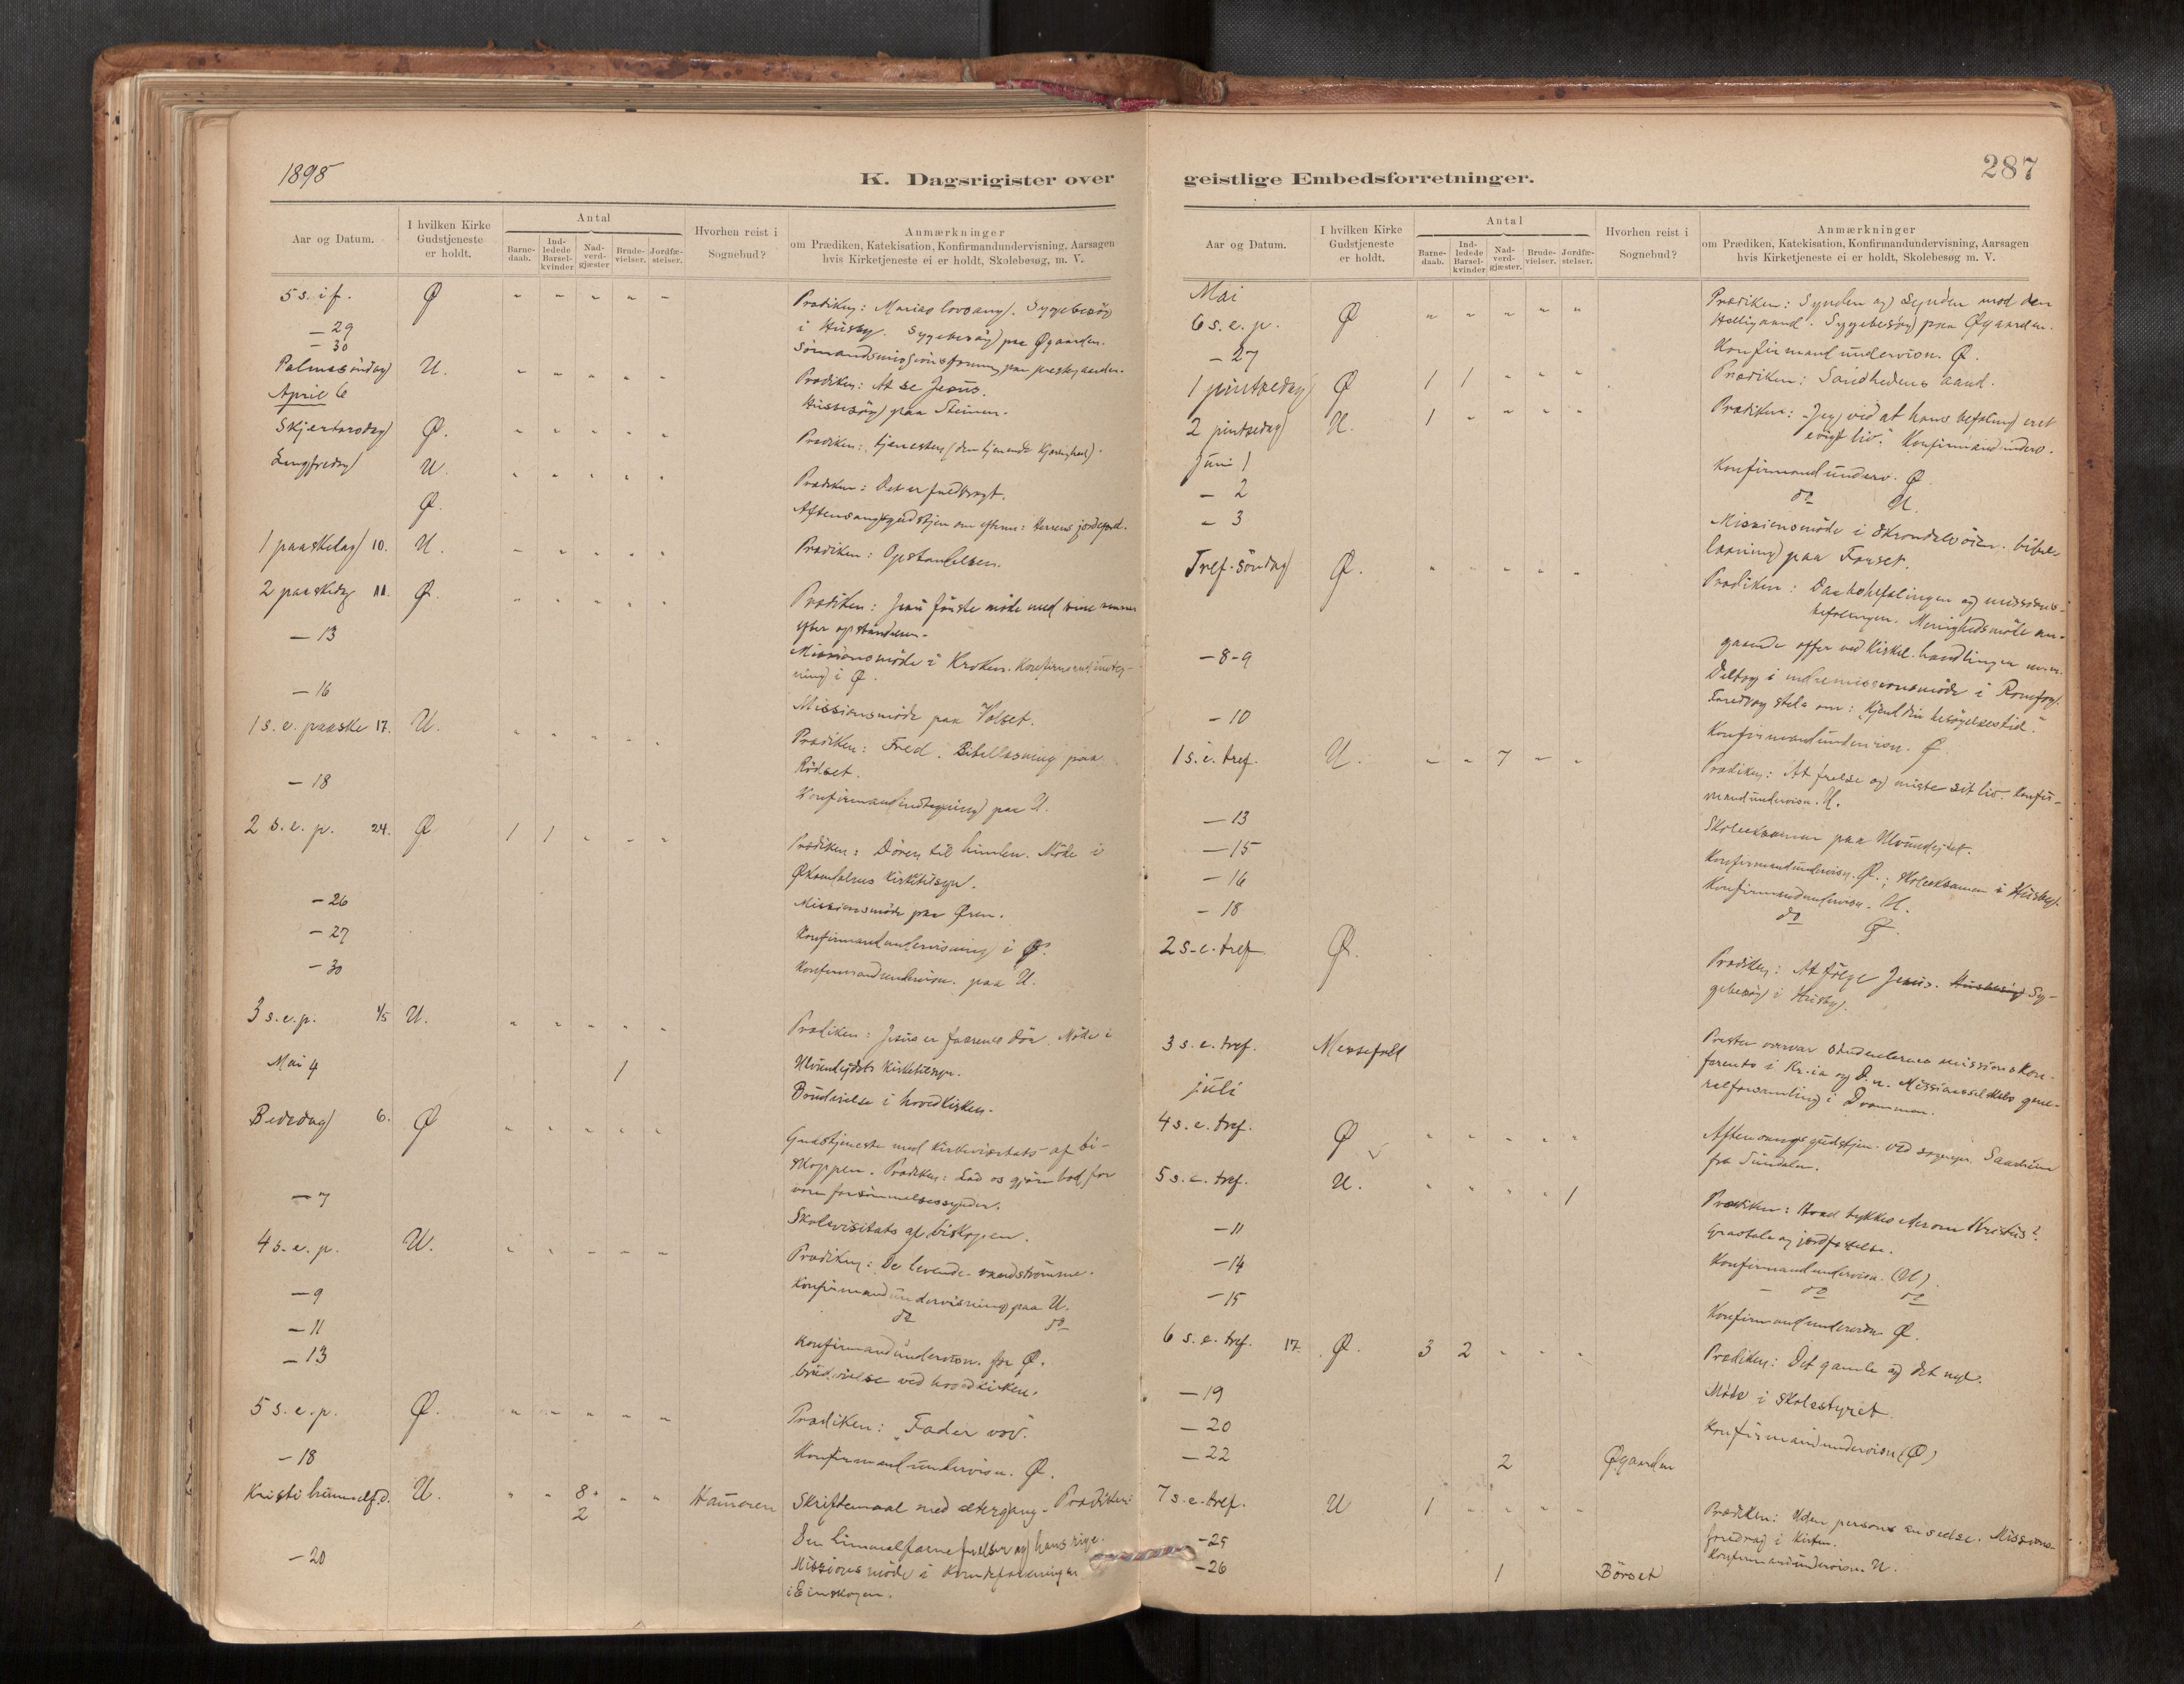 1898
K. Dagsrigister over
Aar og Datum.
I hvilken Kirke Gudstjeneste er holdt.
Antal
Barne-daab.
Ind-ledede Barsel-kvinder
Nad-verd-gjæster
Brude-vielser.
Jordfæ-stelser.
Hvorhen reist i Sognebud?
Anmærkninger
om Prædiken, Katekisation, Konfirmandundervisning, Aarsagen
hvis Kirketjeneste ei er holdt, Skolebesøg, m. V.
5 s. i f. Ø " " " " " Prædiken: Marias lovsang. Sygebesøg
— 29 i Husby. Sygebesøg paa Øgaarden.
— 30 Sømandsmissionsforening paa prestgaarden.
Palmesøndag U. " " " " " Prædiken: At se Jesus.
April 6 Husbesøg paa
Skjertorsdag Ø. " " " " " Prædiken: tjenesten (den tjenende Kjærlighed).
Langfredag U. " " " " " Prædiken: Det er fuldbragt.
Ø. Aftensangsgudstjen om efterm: Herrens jordefærd.
1 paaskedag 10. U. " " " " " Prædiken: Opstandelsen.
2 paaskedag 11. Ø. " " " " " Prædiken: Jesu første møde med sine venner
efter opstandelsen.
— 13 Missionsmøde i Kroken. Konfirmandindteg-
ning i Ø.
— 16 Missionsmøde paa Volset.
1 s. e. paaske 17. U. " " " " " Prædiken: Fred. Bibellæsning paa
Rødset.
— 18 Konfirmandindtegning paa U.
2 s. e. p. 24. Ø 1 1 " " " Prædiken: Døren til himlen. Møde i
Øksendalens Kirketilsyn.
— 26 Missionsmøde paa Øren.
— 27 Konfirmandundervisning i Ø.
— 30 Konfirmandundervisn. paa U.
3 s. e. p. 1/5 U. " " " " " Prædiken: Jesus er faarenes dør. Møde i
Ulvundeidets Kirketilsyn.
Mai 4 1 Brudevielse i hovedkirken.
Bededag 6. Ø " " " " " Gudstjeneste med Kirkevisitats af bi-
skoppen. Prædiken: Lad os gjøre bod for
vore forsømmelsessynder.
— 7 Skolevisitats af biskopen.
4 s. e. p. U. " " " " " Prædiken: De levende vandstrømme.
— 9 Konfirmandundervisning paa U.
— 11 do do
— 13 Konfirmandundervisn. for Ø.
brudevielse ved hovedkirken.
5 s. e. p. Ø. " " " " " Prædiken: "Fader vor.
— 18 Konfirmandundervisn. Ø.
Kristi himmelf.d. U. " " 8 " " Hammeren Skriftemaal med altergang. Prædiken:
2 Den himmelfarne frelser og hans rige.
— 20 Missionsmøde i
i
287
geistlige Embedsforretninger.
Aar og Datum.
I hvilken Kirke Gudstjeneste er holdt.
Antal
Barne-daab.
Ind-ledede Barsel-kvinder
Nad-verd-gjæster.
Brude-vielser.
Jordfæ-stelser.
Hvorhen reist i Sognebud?
Anmærkninger
om Prædiken, Katekisation, Konfirmandundervisning, Aarsagen
hvis Kirketjeneste ei er holdt, Skolebesøg m. V.
Mai
6 s. e. p. Ø " " " " " Prædiken: Synden og Synden mod den
Helligaand. Sygebesøg paa Øgaarden.
— 27 Konfirmandundervisn. Ø.
1 pintsedag Ø 1 1 " " " Prædiken: Sandhedens aand.
2 pintsedag U. 1 " " " " Prædiken: "Jeg ved at hans befaling er et
evigt liv." Konfirmandunderv.
Juni 1 Konfirmandunderv. Ø.
— 2 do U.
— 3 Missionsmøde i bibel-
læsning paa Forset.
Tref. søndag Ø. " " " " " Prædiken: Daabsbefalingen og missions-
befalingen. Menighedsmøde an-
gaaende offer ved Kirkel. handlinger m.m.
— 8-9 Deltog i indremissionsmøde i Romfog.
Foredrog stedse om: "Kjend din besøgelsestid."
— 10 Konfirmandundervisn. Ø.
1 s. e. tref. U. " " 7 " " Prædiken: At frelse og miste sit liv. Konfir-
mandundervisn. U.
— 13 Skoleeksamen paa Ulvundeidet.
— 15 Konfirmandundervisn. Ø.; skoleeksamen i Husby.
— 16 Konfirmandundervisn. U.
— 18 do Ø.
2 s. e. tref Ø. Prædiken: At følge Jesus. Husbesøg Sy-
gebesøg i Husby.
3 s. e. tref. Messefald Presten overvar studenternes missionskon-
ferents i Kr.ia og D. n. Missionsselskabs gene-
ralforsamling i Drammen.
juli
4 s. e. tref. Ø " " " " " Aftensangsgudstjen. ved sognepr.
fra Sundalen.
5 s. e. tref. U. " " " " 1 Prædiken: Hvad tykkes eder om Kristus?
Gravtale og jordfæstelse.
— 11 Konfirmandundervisn. (U).
— 14 — do do
— 15 Konfirmandundervisn Ø.
6 s. e. tref. 17. Ø. 3 2 " " " Prædiken: Det gamle og det nye.
— 19 Møde i skolestyret.
— 20 Konfirmandundervisn (Ø)
— 22 2 Øgaarden
7 s. e. tref. U 1 " " " " Prædiken: Uden persons anseelse. Missions-
foredrag i kirken.
— 25 Konfirmandundervisn. U.
— 26 1 Børset